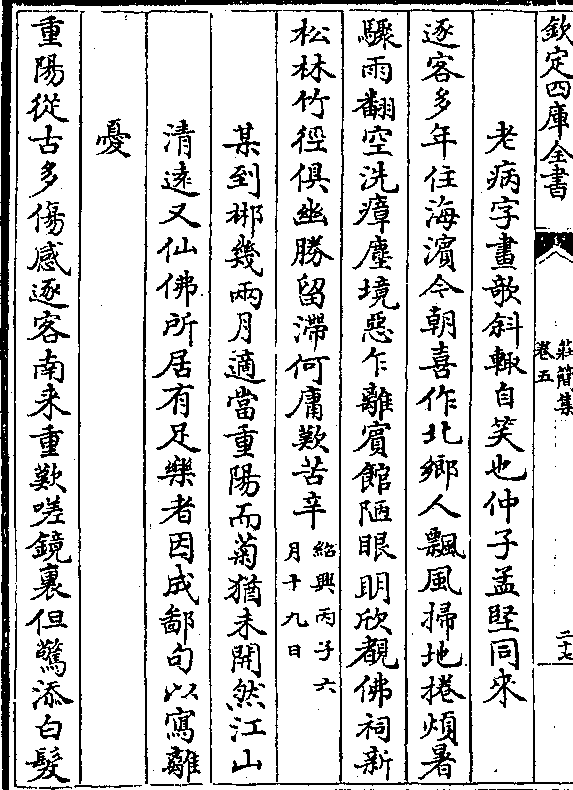 欽定四庫全書
莊簡集
卷五
二十七
老病字畫欹斜輙自笑也仲子孟堅同來
逐客多年住海濱今朝喜作北鄉人飄風掃地捲煩暑
驟雨翻空洗瘴塵境惡乍離賓館陋眼明欣覩佛祠新
松林竹徑俱幽勝留滯何庸歎苦辛紹興丙子六
月十九日
某到郴幾兩月適當重陽而菊猶未開然江山
清逺又仙佛所居有足樂者因成鄙句以寫離
憂
重陽從古多傷感逐客南来重歎嗟鏡裏但驚添白髮